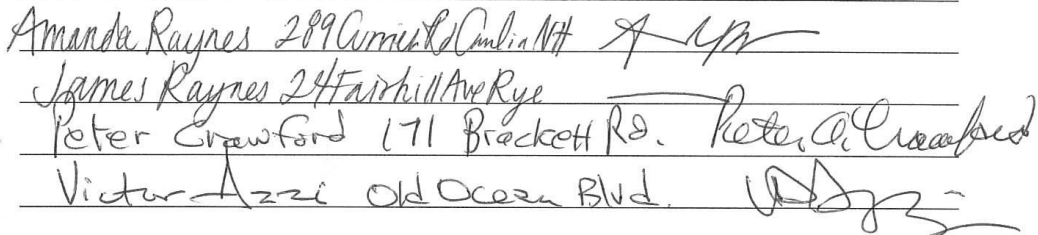 Amanda Raynes 289 Rd NH
James Raynes 24 Fairhill Ave Rye
Peter Crawford 171 Brackett Rd. Peter A. Crawford
Victor Azzi Old Ocean Blvd.